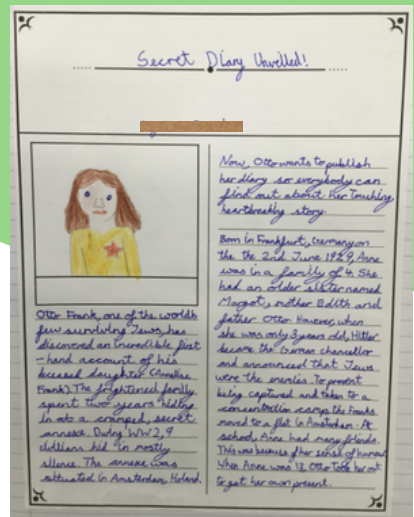 Secret Diary Unveiled!
Otto Frank, one of the worlds
few surviving Jews, has
discovered an incredible first
-hand account of his
deceased daughter (Annelise
Frank). The frightened family
spent two years hiding
in a cramped, secret
annexe. During WW2, 9
civilians hid in mostly
silence. The annexe was
situated in Amsterdam, Holand.
Now, Otto wants to publish
her diary so everybody can
find out about her touching
heartbreaking story.
Born in Frankfurt, Germany on
the the 2nd June 1929, Anne
was in a family of 4. She
had an older sister named
Margot, mother Edith and
father Otto. However, when
she was only 3 years old, Hitler
became the German chancellor
and announced that Jews
were the enemies. To prevent
being captured and taken to a
concentration camps the Franks
moved to a flat in Amsterdam. At
school, Anne had many friends.
This was because of her sense of humour
When Anne was 13, Otto Took her out
to get her own present.